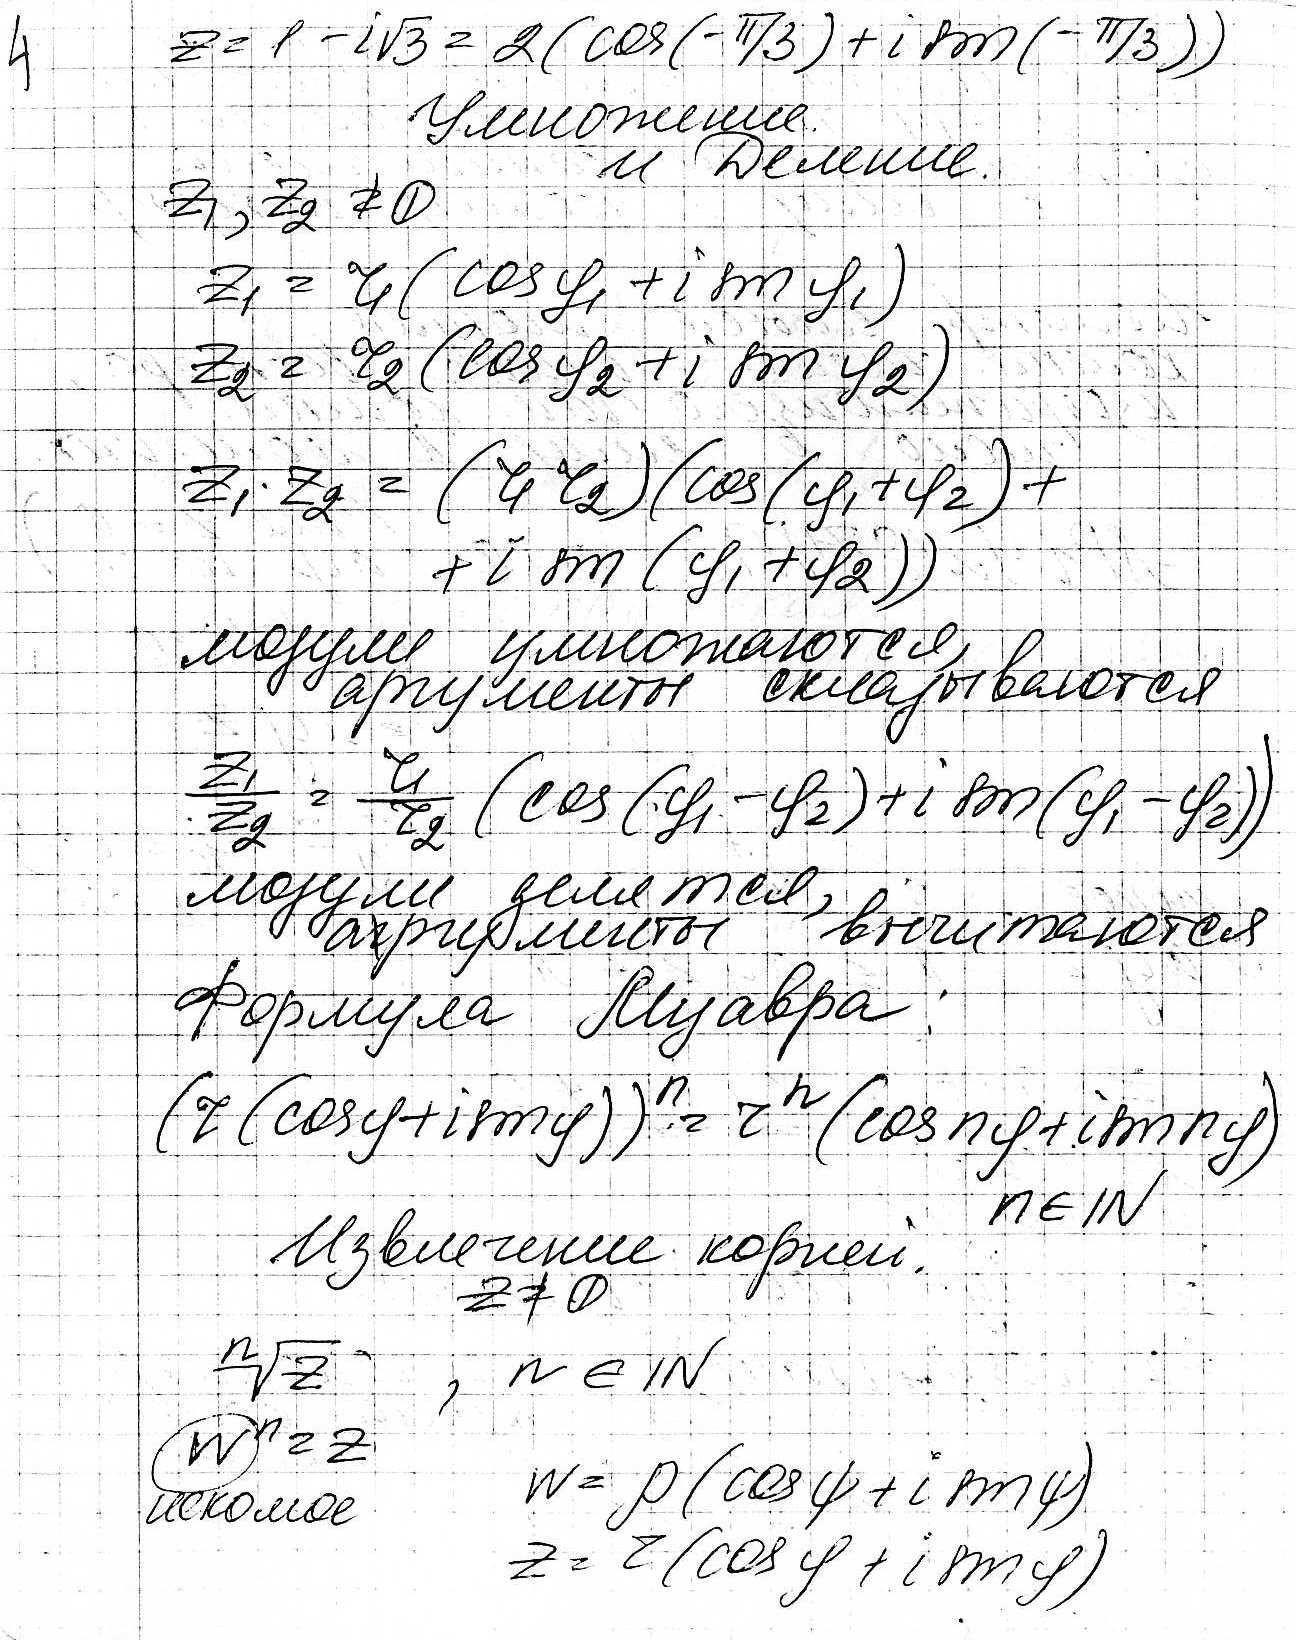 4
z = 1 - i√3 = 2(cos(-π/3) + i sin(-π/3))
Умножение
и Деление.
z₁, z₂ ≠ 0
z₁ = r₁(cosφ₁ + i sin φ₁)
z₂ = r₂(cosφ₂ + i sin φ₂)
z₁ · z₂ = (r₁ r₂)(cos(φ₁+φ₂) +
+ i sin(φ₁+φ₂))
модули умножаются,
аргументы складываются
z₁/z₂ = r₁/r₂ (cos(φ₁-φ₂) + i sin(φ₁-φ₂))
модули делятся,
аргументы вычитаются
Формула Муавра:
(r(cosφ+i sinφ))ⁿ = rⁿ(cos nφ + i sin nφ)
n ∈ ℕ
Извлечение корней.
z ≠ 0
ⁿ√z , n ∈ ℕ
wⁿ = z
искомое
w = ρ(cosψ + i sinψ)
z = r(cosφ + i sinφ)